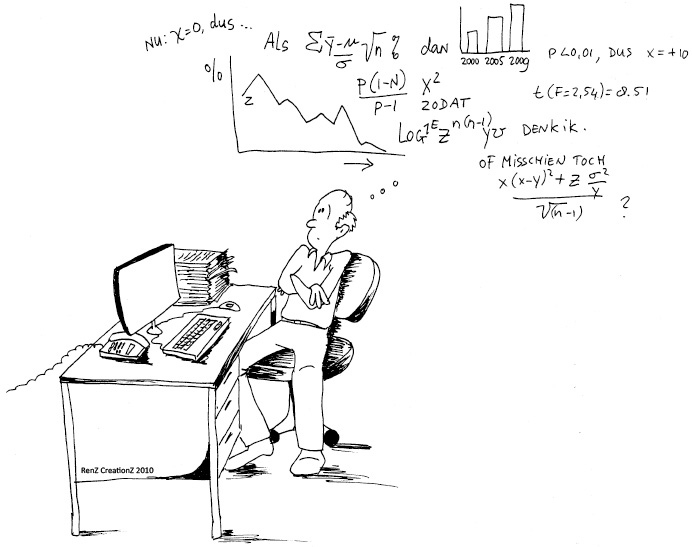 NU: X=0, dus ...
Als Σ ȳ-μ/σ √n % dan
2000 2005 2009
P<0,01, DUS X=+10
%
z
P(1-N)/P-1 X²
ZODAT
t(F=2,54)=8.51
DENK IK.
OF MISSCHIEN TOCH
x(x-y)²+z σ²/y
√(n-1) ?
RenZ CreationZ 2010